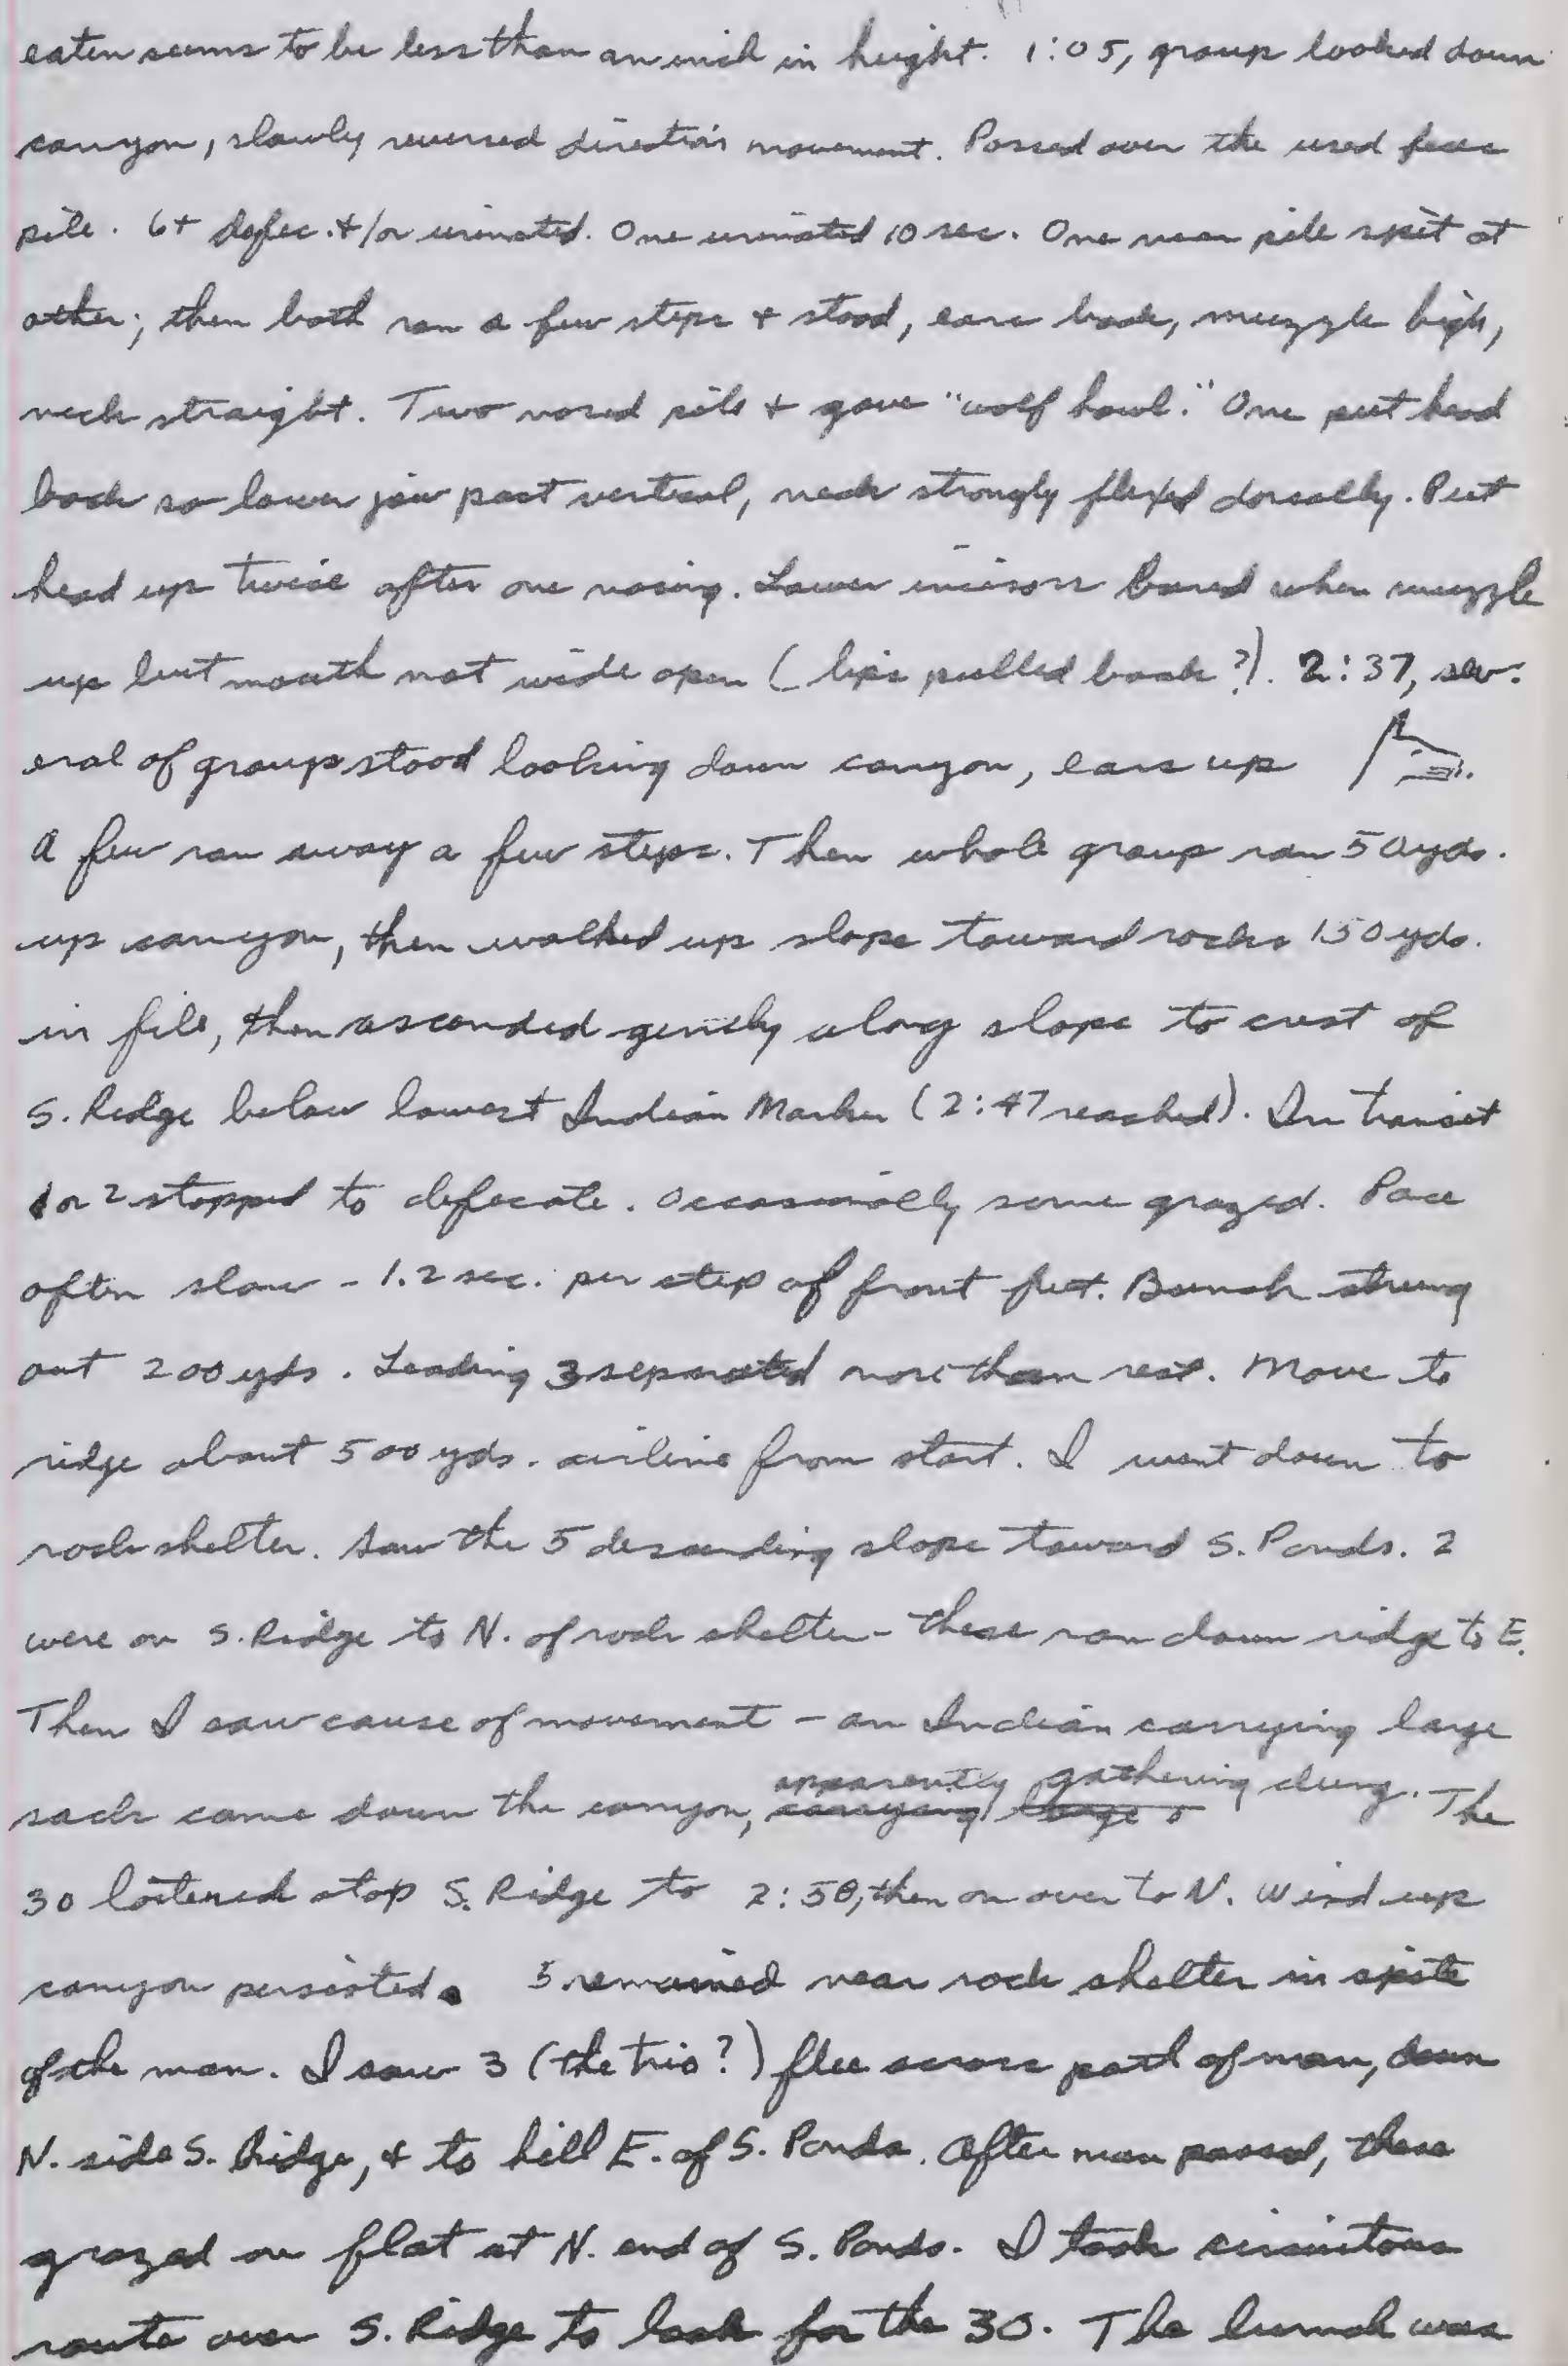 eaten seems to be less than an inch in height. 1:05, group looked down
canyon, slowly reversed direction movement. Passed over the used feces
pile. 6+ defec. +/or urinated. One urinated 10 sec. One near pile spit at
other; then both ran a few steps + stood, ears back, muzzle high,
neck straight. Two nosed pile + gave "wolf howl." One put head
back so lower jaw past vertical, neck strongly flexed dorsally. Put
head up twice after one nosing. Lower incisors bared when muzzle
up but mouth not wide open (lips pulled back?). 2:37, sev-
eral of group stood looking down canyon, ears up
A few ran away a few steps. Then whole group ran 50 yds.
up canyon, then walked up slope toward rocks 150 yds.
in file, then ascended gently along slope to crest of
S. Ridge below lowest Indian Marker (2:47 reached). In transit
1 or 2 stopped to defecate. Occasionally some grazed. Pace
often slow - 1.2 sec. per step of front feet. Bunch strung
out 200 yds. Leading 3 separated more than rest. Move to
ridge about 500 yds. airline from start. I went down to
rock shelter. Saw the 5 descending slope toward S. Ponds. 2
were on S. Ridge to N. of rock shelter - these ran down ridge to E.
Then I saw cause of movement - an Indian carrying large
sack came down the canyon, carrying large s apparently gathering dung. The
30 loitered atop S. Ridge to 2:58, then on over to N. Wind up
canyon persisted. 5 remained near rock shelter in spite
of the man. I saw 3 (the trio?) flee across path of man, down
N. side S. Ridge, + to hill E. of S. Ponds. After man passed, these
grazed on flat at N. end of S. Ponds. I took circuitous
route over S. Ridge to look for the 30. The bunch was